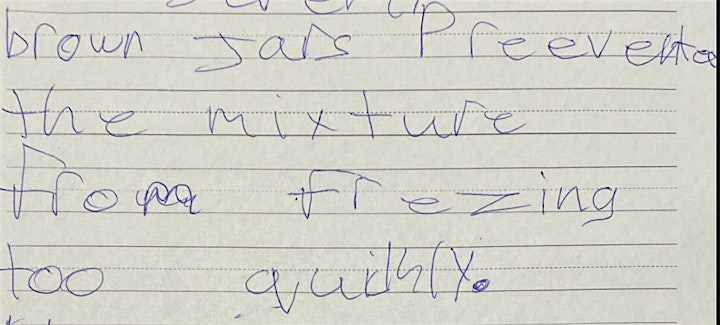 brown Jars Preevente
the mixture
from frezing
too quikly.